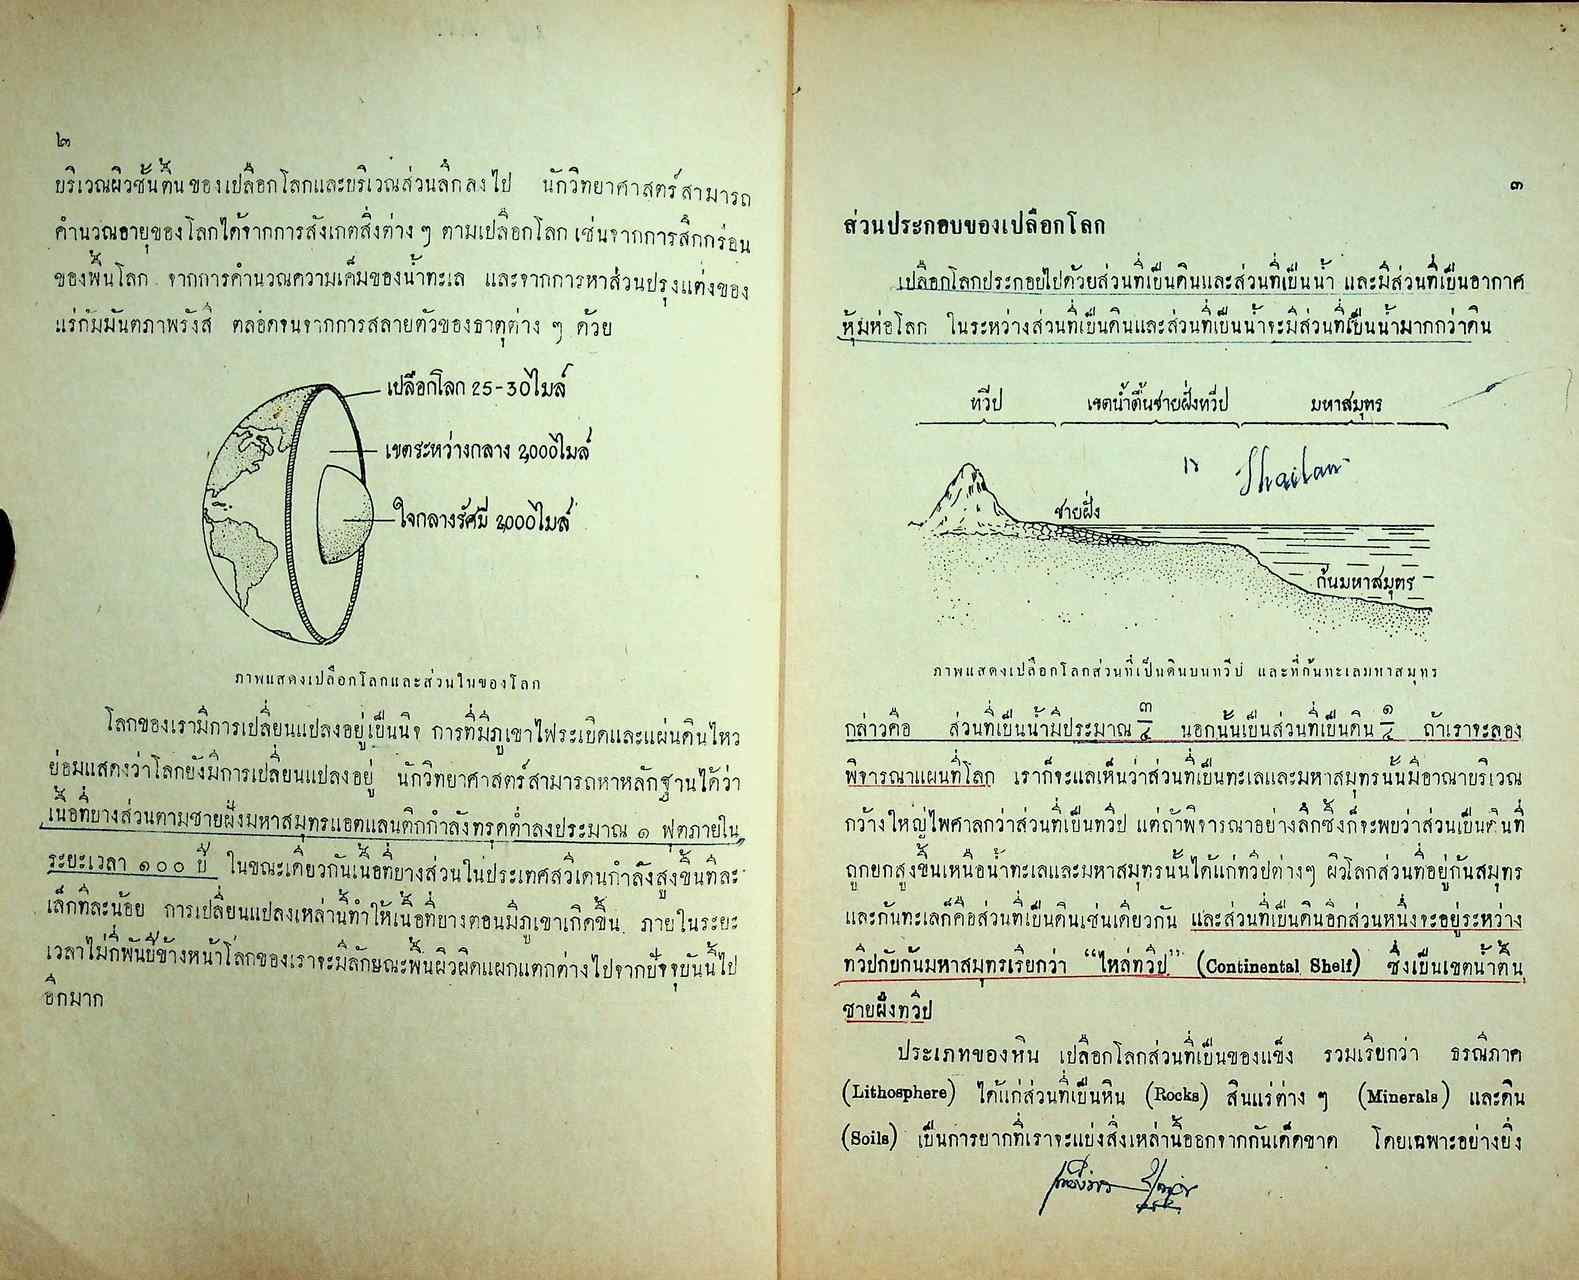 ๒
บริเวณผิวชั้นตื้นของเปลือกโลกและบริเวณส่วนลึกลงไป นักวิทยาศาสตร์สามารถ
คำนวณอายุของโลกได้จากการสังเกตสิ่งต่าง ๆ ตามเปลือกโลก เช่นจากการสึกกร่อน
ของพื้นโลก จากการคำนวณความเค็มของน้ำทะเล และจากการหาส่วนปรุงแต่งของ
แร่กัมมันตภาพรังสี ตลอดจนจากการสลายตัวของธาตุต่าง ๆ ด้วย
เปลือกโลก 25-30ไมล์
เขตระหว่างกลาง 2,000ไมล์
ใจกลางรัศมี 2,000ไมล์
ภาพแสดงเปลือกโลกและส่วนในของโลก
โลกของเรามีการเปลี่ยนแปลงอยู่เป็นนิจ การที่มีภูเขาไฟระเบิดและแผ่นดินไหว
ย่อมแสดงว่าโลกยังมีการเปลี่ยนแปลงอยู่ นักวิทยาศาสตร์สามารถหาหลักฐานได้ว่า
เนื้อที่บางส่วนตามชายฝั่งมหาสมุทรแอตแลนติกกำลังทรุดต่ำลงประมาณ ๑ ฟุตภายใน
ระยะเวลา ๑๐๐ ปี ในขณะเดียวกันเนื้อที่บางส่วนในประเทศสวีเดนกำลังสูงขึ้นทีละ
เล็กทีละน้อย การเปลี่ยนแปลงเหล่านี้ทำให้เนื้อที่บางตอนมีภูเขาเกิดขึ้น ภายในระยะ
เวลาไม่กี่พันปีข้างหน้าโลกของเราจะมีลักษณะพื้นผิวผิดแผกแตกต่างไปจากปัจจุบันนี้ไป
อีกมาก
๓
ส่วนประกอบของเปลือกโลก
เปลือกโลกประกอบไปด้วยส่วนที่เป็นดินและส่วนที่เป็นน้ำ และมีส่วนที่เป็นอากาศ
หุ้มห่อโลก ในระหว่างส่วนที่เป็นดินและส่วนที่เป็นน้ำจะมีส่วนที่เป็นน้ำมากกว่าดิน
ทวีป เขตน้ำตื้นชายฝั่งทวีป มหาสมุทร
ชายฝั่ง
ก้นมหาสมุทร
ภาพแสดงเปลือกโลกส่วนที่เป็นดินบนทวีป และที่ก้นทะเลมหาสมุทร
กล่าวคือ ส่วนที่เป็นน้ำมีประมาณ ๓/๔ นอกนั้นเป็นส่วนที่เป็นดิน ๑/๔ ถ้าเราจะลอง
พิจารณาแผนที่โลก เราก็จะแลเห็นว่าส่วนที่เป็นทะเลและมหาสมุทรนั้นมีอาณาบริเวณ
กว้างใหญ่ไพศาลกว่าส่วนที่เป็นทวีป แต่ถ้าพิจารณาอย่างลึกซึ้งก็จะพบว่าส่วนเป็นดินที่
ถูกยกสูงขึ้นเหนือน้ำทะเลและมหาสมุทรนั้นได้แก่ทวีปต่างๆ ผิวโลกส่วนที่อยู่ก้นสมุทร
และก้นทะเลก็คือส่วนที่เป็นดินเช่นเดียวกัน และส่วนที่เป็นดินอีกส่วนหนึ่งจะอยู่ระหว่าง
ทวีปกับก้นมหาสมุทรเรียกว่า “ไหล่ทวีป” (Continental Shelf) ซึ่งเป็นเขตน้ำตื้น
ชายฝั่งทวีป
ประเภทของหิน เปลือกโลกส่วนที่เป็นของแข็ง รวมเรียกว่า ธรณีภาค
(Lithosphere) ได้แก่ส่วนที่เป็นหิน (Rocks) สินแร่ต่าง ๆ (Minerals) และดิน
(Soils) เป็นการยากที่เราจะแบ่งสิ่งเหล่านี้ออกจากกันเด็ดขาด โดยเฉพาะอย่างยิ่ง